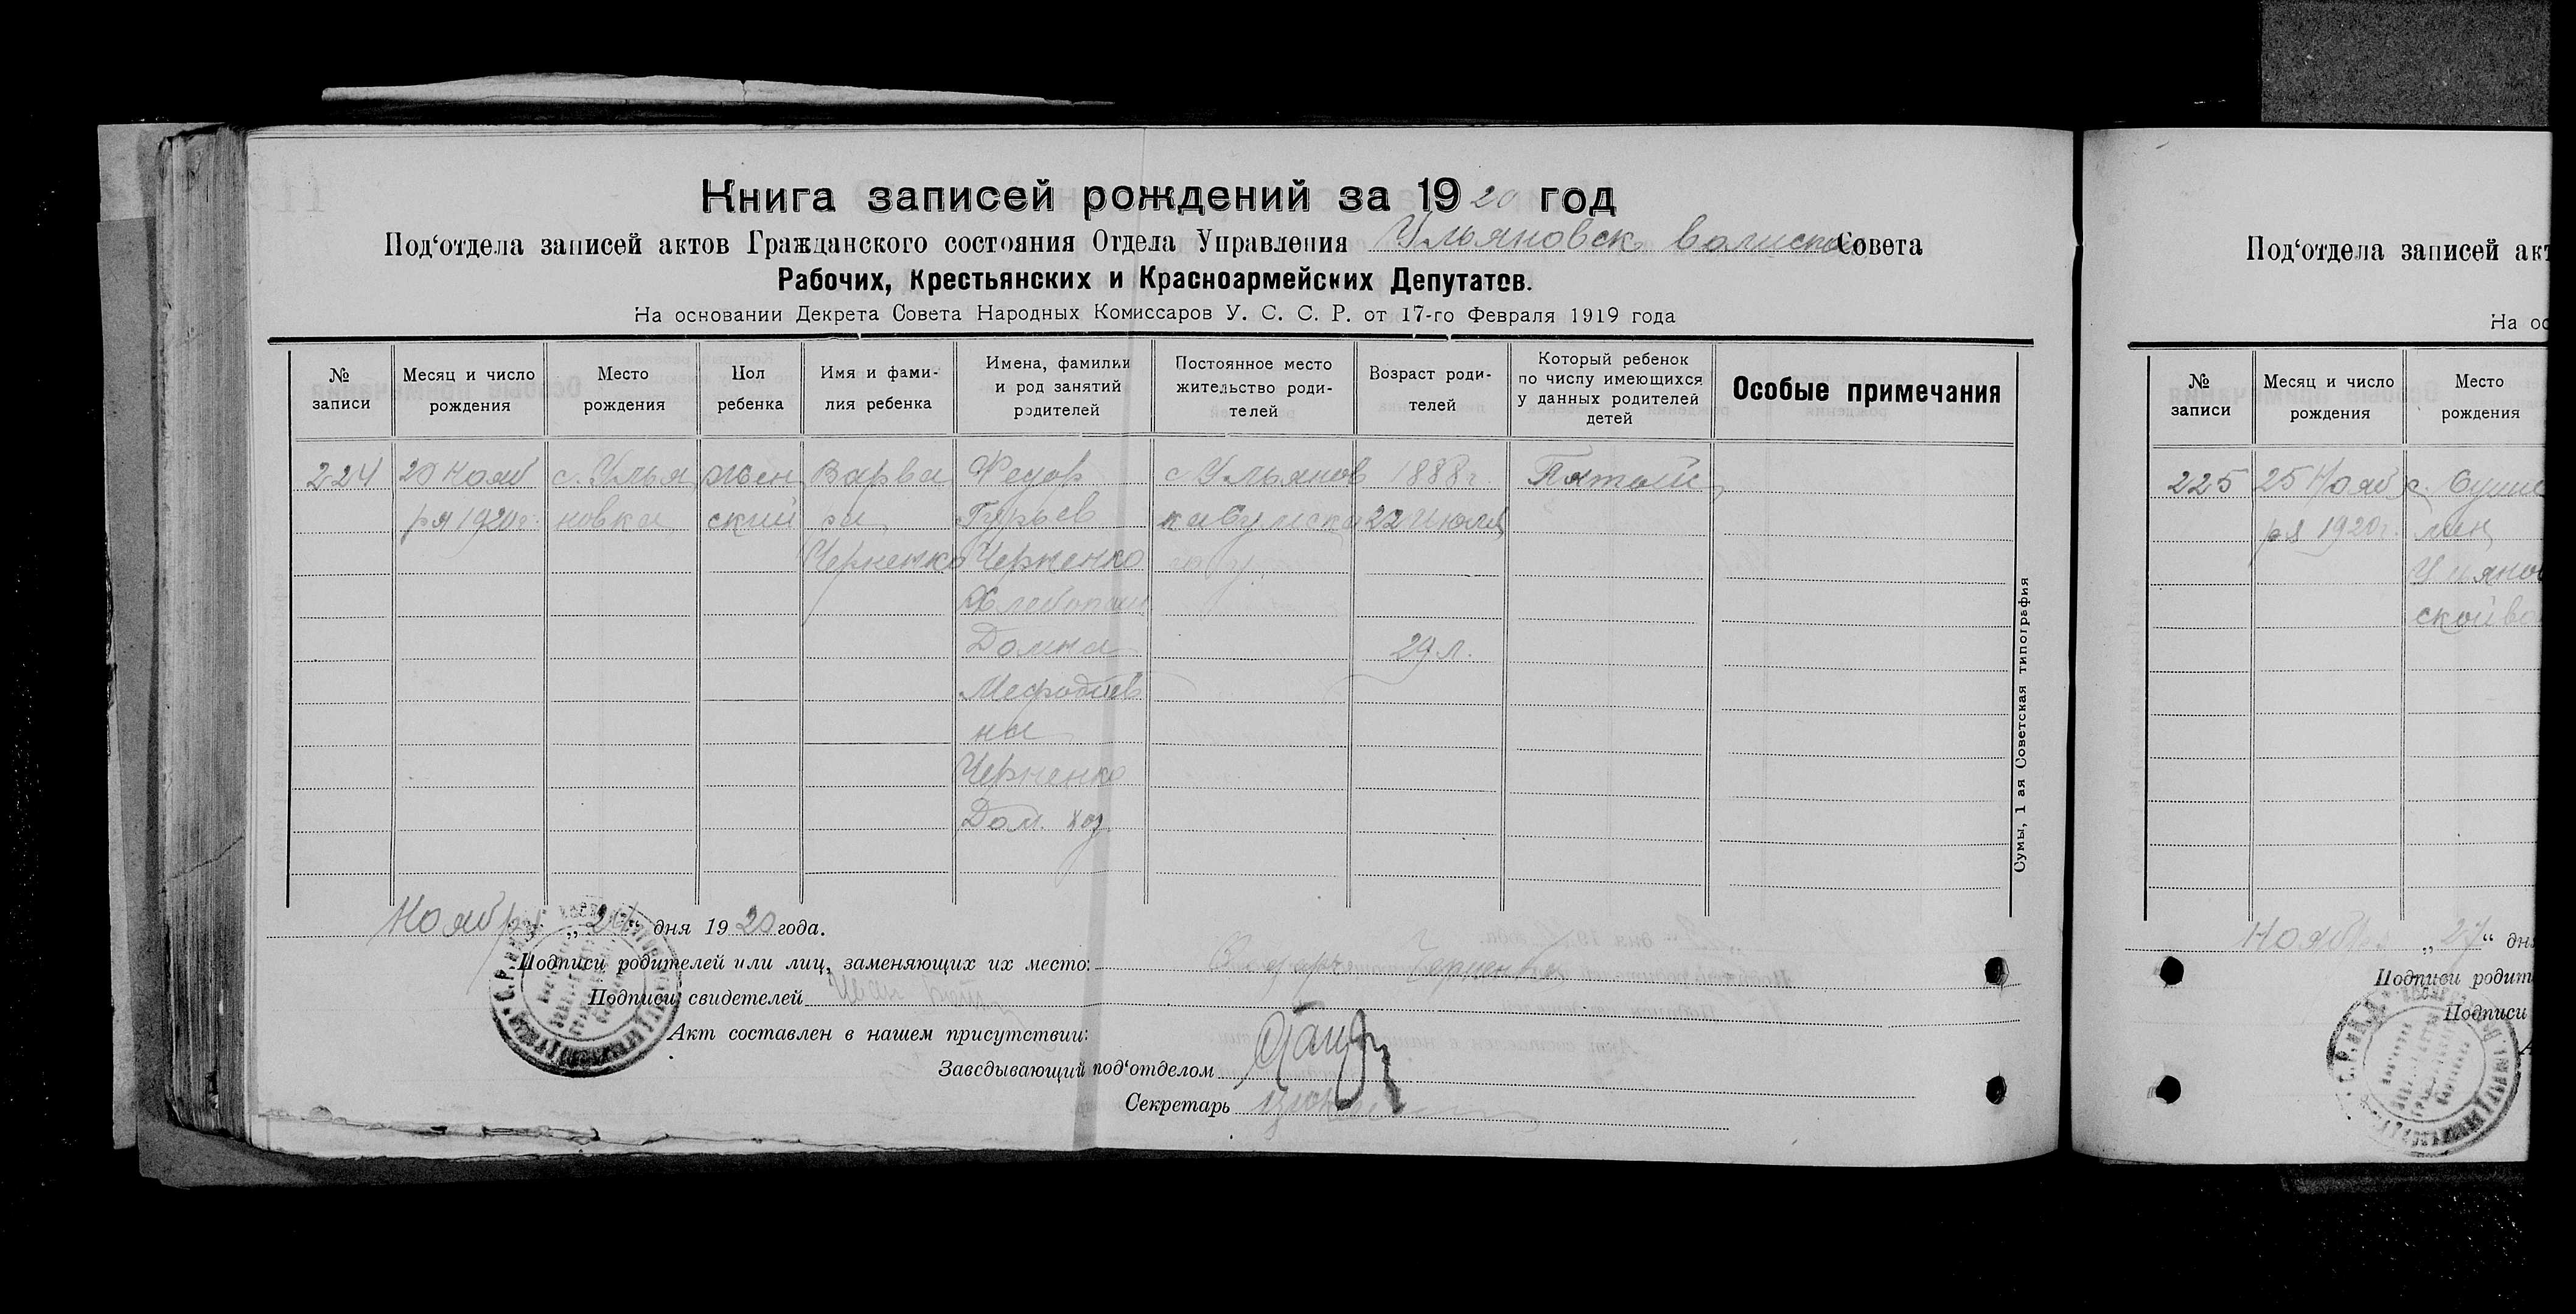 Книга записей рождений за 1920 год
Под‘отдела записей актов Гражданского состояния Отдела Управления Ульяновск. Совета
Рабочих, Крестьянских и Красноармейских Депутатов.
На основании Декрета Совета Народных Комиссаров У. С. С. Р. от 17-го Февраля 1919 года
№ записи
Месяц и число рождения
Место рождения
Пол ребенка
Имя и фами-
лия ребенка
Имена, фамилии
и род занятий
родителей
Постоянное место
жительство роди-
телей
Возраст роди-
телей
Который ребенок
по числу имеющихся
у данных родителей
детей
Особые примечания
224
20 Нояб
ря 1920г.
с. Улья
новка
жен
ский
Варва
ра
Черненко
Федор
Гурьев
Черненко
Хлебопаш
Домна
Мефодиев
на
Черненко
Дом. хоз.
с Ульянов
ка Сумска
го у.
1888г.
22 Июля
29 л.
Пятый
Ноября „24“ дня 1920 года.
Подписи родителей или лиц, заменяющих их место: Черненко
Подписи свидетелей
Акт составлен в нашем присутствии:
Заведывающий под‘отделом
Секретарь
Сумы, 1 ая Советская типография
Под‘отдела записей акт
На ос
№ записи
Месяц и число рождения
Место рождения
225
25 Нояб
ря 1920г.
ской во
Ноября „27“ дня
Подписи родит
Подписи